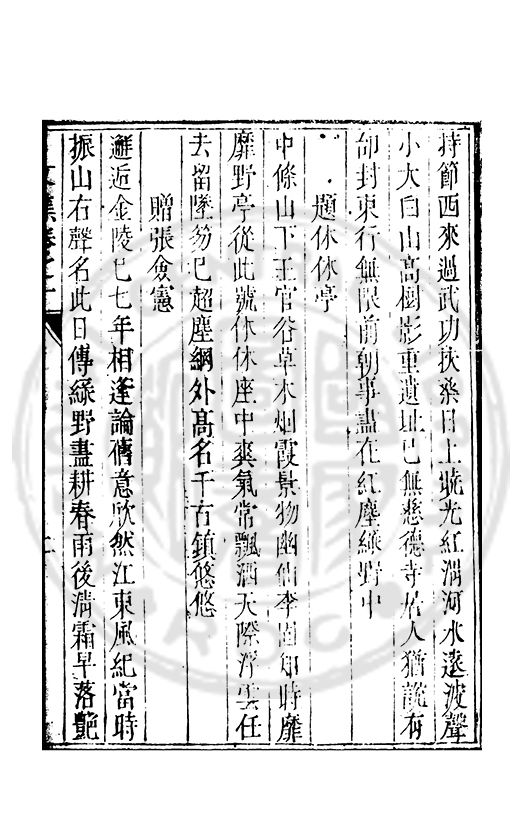 持節西來過武功扶桑日上曉光紅渭河水遠波聲
小大白山高樹影重遺址已無慈德寺居人猶說有
邰封東行無限前朝事盡在紅塵綠野中
題休休亭
中條山下王官谷草木烟霞景物幽仙李當年時靡
靡野亭從此號休休座中爽氣常飄洒天際浮雲任
去留墜笏已超塵網外高名千古鎮悠悠
贈張僉憲
邂逅金陵已七年相逢論舊意欣然江東風紀當時
振山右聲名此日傳綠野盡耕春雨後清霜早落艷
文集卷之